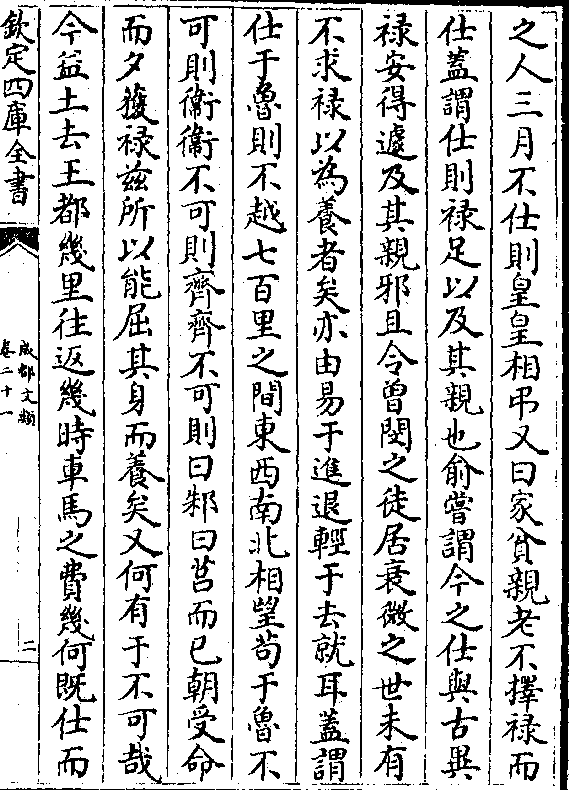 之人三月不仕則皇皇相弔又曰家貧親老不擇禄而
仕蓋謂仕則禄足以及其親也俞嘗謂今之仕與古異
禄安得遽及其親邪且令曾閔之徒居衰微之世未有
不求禄以為養者矣亦由易于進退輕于去就耳蓋謂
仕于魯則不越七百里之間東西南北相望苟于魯不
可則衛衛不可則齊齊不可則曰邾曰莒而已朝受命
而夕獲禄兹所以能屈其身而養矣又何有于不可哉
今益土去王都幾里往返幾時車馬之費幾何既仕而
欽定四庫全書
成都文類
卷二十一
二